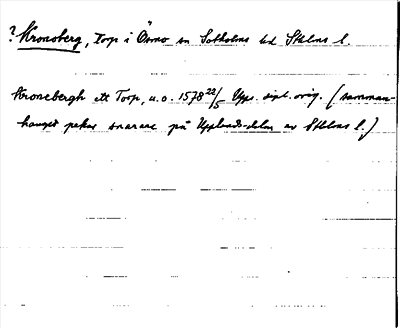 ? Kronoberg, torp i Ösmo sn Sotholms hd Sthlms l.
Kronebergh ett Torp, u.o. 1578 22/5 Upps. dipl. orig. (samman-
hanget pekar snarare på Upplands-delen av Sthlms l.)